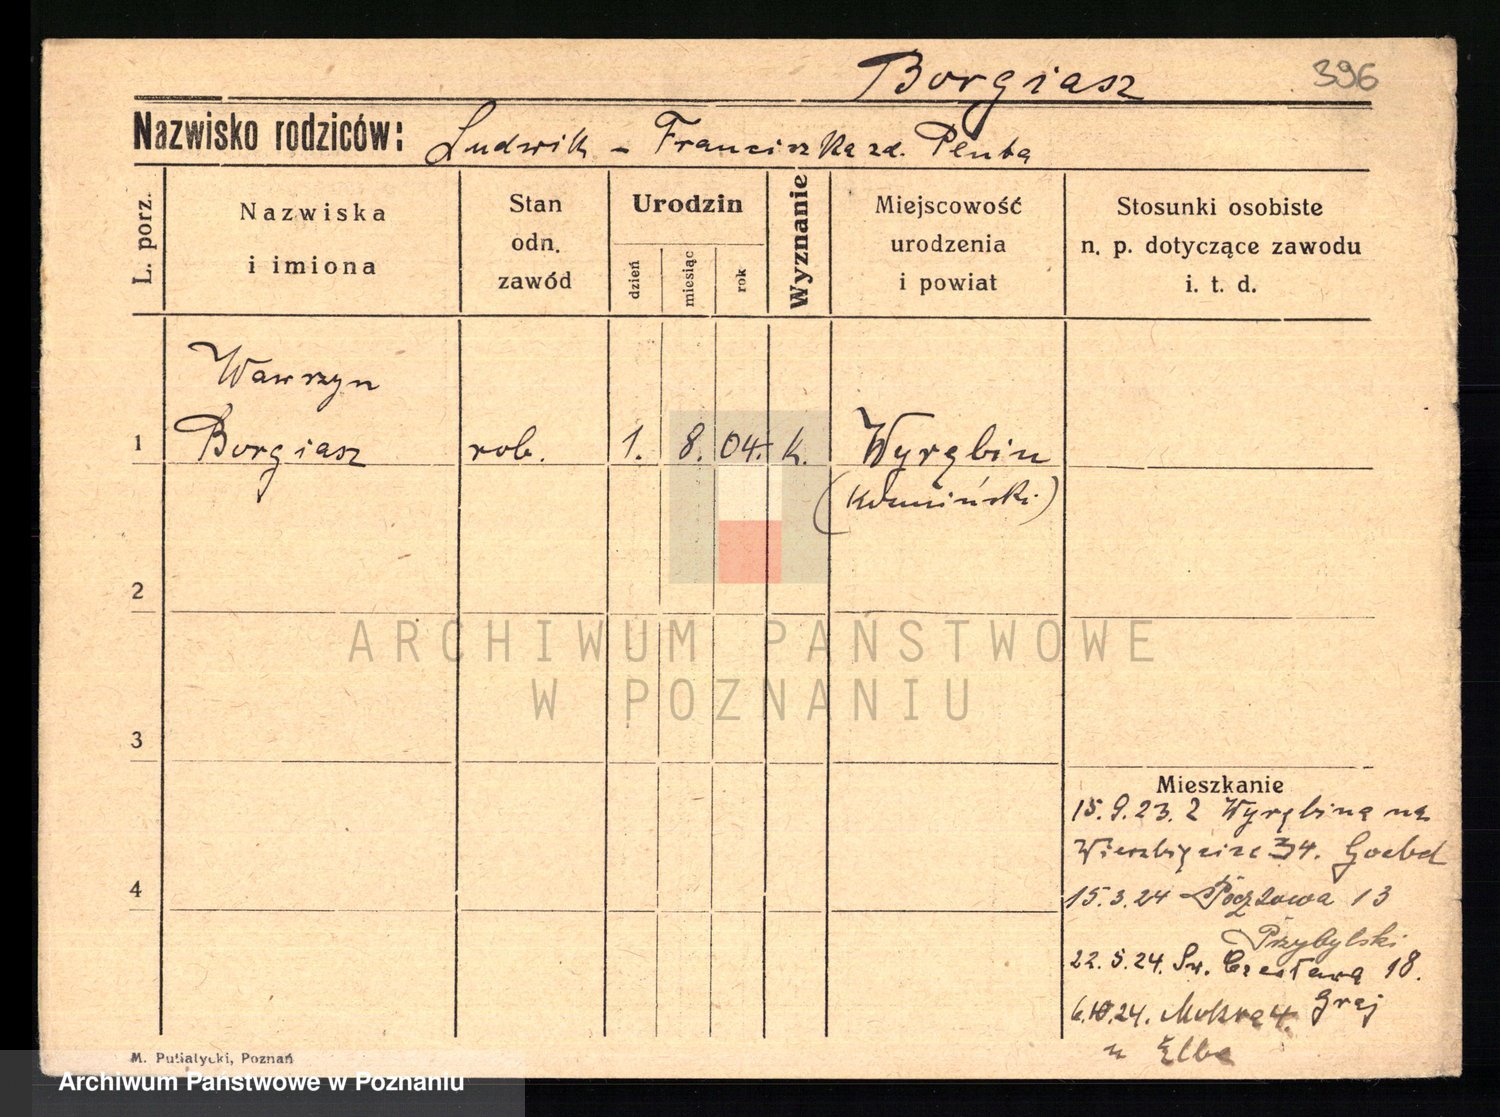 Borgiasz
396
Nazwisko rodziców: Ludwik - Franciszka zd. Pluta
L. porz.
Nazwiska
i imiona
Stan
odn.
zawód
Urodzin
dzień
miesiąc
rok
Wyznanie
Miejscowość
urodzenia
i powiat
Stosunki osobiste
n. p. dotyczące zawodu
i. t. d.
Wawrzyn
1 Borgiasz rob. 1. 8. 04. k. Wyrębin
2
3
4
ARCHIWUM PAŃSTWOWE
W POZNANIU
Mieszkanie
15.9.23. z Wyrębina na
Wierzbięcice 34.
15.3.24 Pocztowa 13
Przybylski
22.5.24. Św. Czesława 18.
Graj
6.10.24. Mokra 4.
u Elbe
M. Putiatycki, Poznań
Archiwum Państwowe w Poznaniu